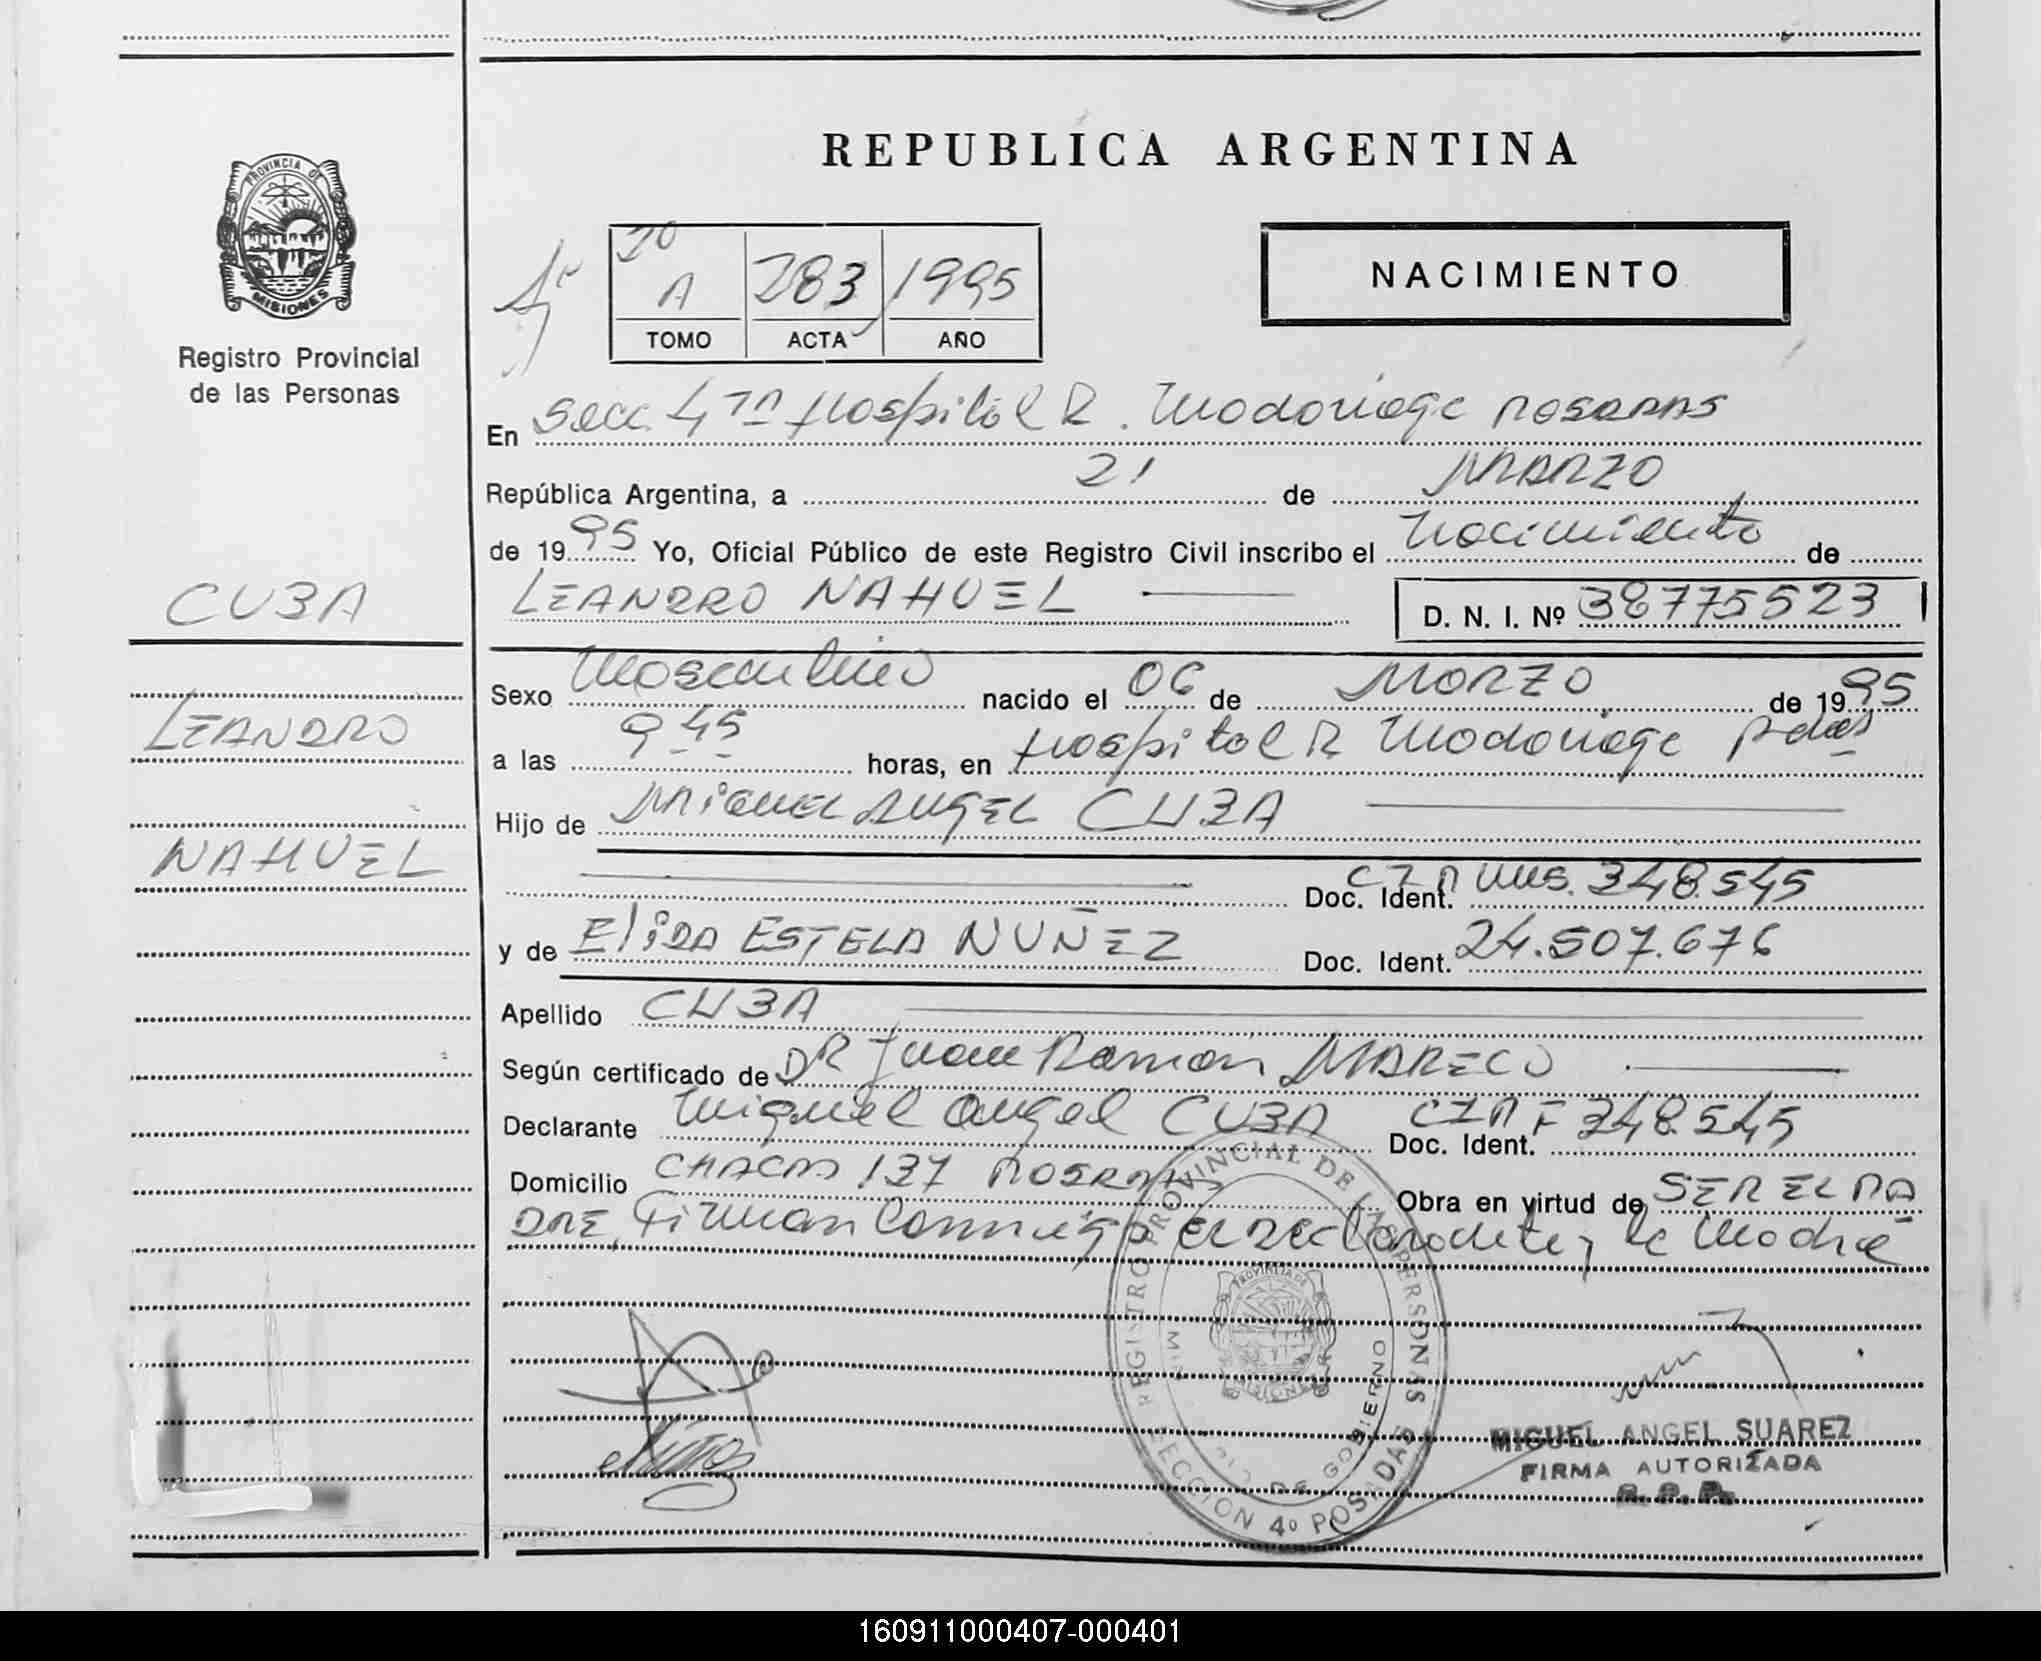 REPUBLICA ARGENTINA
PROVINCIA DE
MISIONES
Registro Provincial
de las Personas
2º
A 283 1995
TOMO ACTA AÑO
NACIMIENTO
En Secc. 4ta Hospital R. Madariaga Posadas
República Argentina, a 21 de Marzo
de 1995 Yo, Oficial Público de este Registro Civil inscribo el nacimiento de
CUBA
LEANDRO NAHUEL
D. N. I. Nº 38775523
Sexo Masculino nacido el 06 de Marzo de 1995
LEANDRO
a las 9 45 horas, en Hospital R Madariaga Pdas
Hijo de Miguel Angel CUBA
NAHUEL
Doc. Ident. CIP Mns. 348.545
y de Elida ESTELA NUÑEZ Doc. Ident. 24.507.676
Apellido CUBA
Según certificado de DR Juan Ramon MARECO
Declarante Miguel Angel CUBA Doc. Ident. 348.545
Domicilio CHACRA 137 POSADAS Obra en virtud de SER EL PA
DRE, Firman Conmigo el declarante y la Madre
REGISTRO PROVINCIAL DE LAS PERSONAS
DE GOBIERNO
PROVINCIA DE
MISIONES
SECCION 4º POSADAS
MIGUEL ANGEL SUAREZ
FIRMA AUTORIZADA
R. P. P.
160911000407-000401